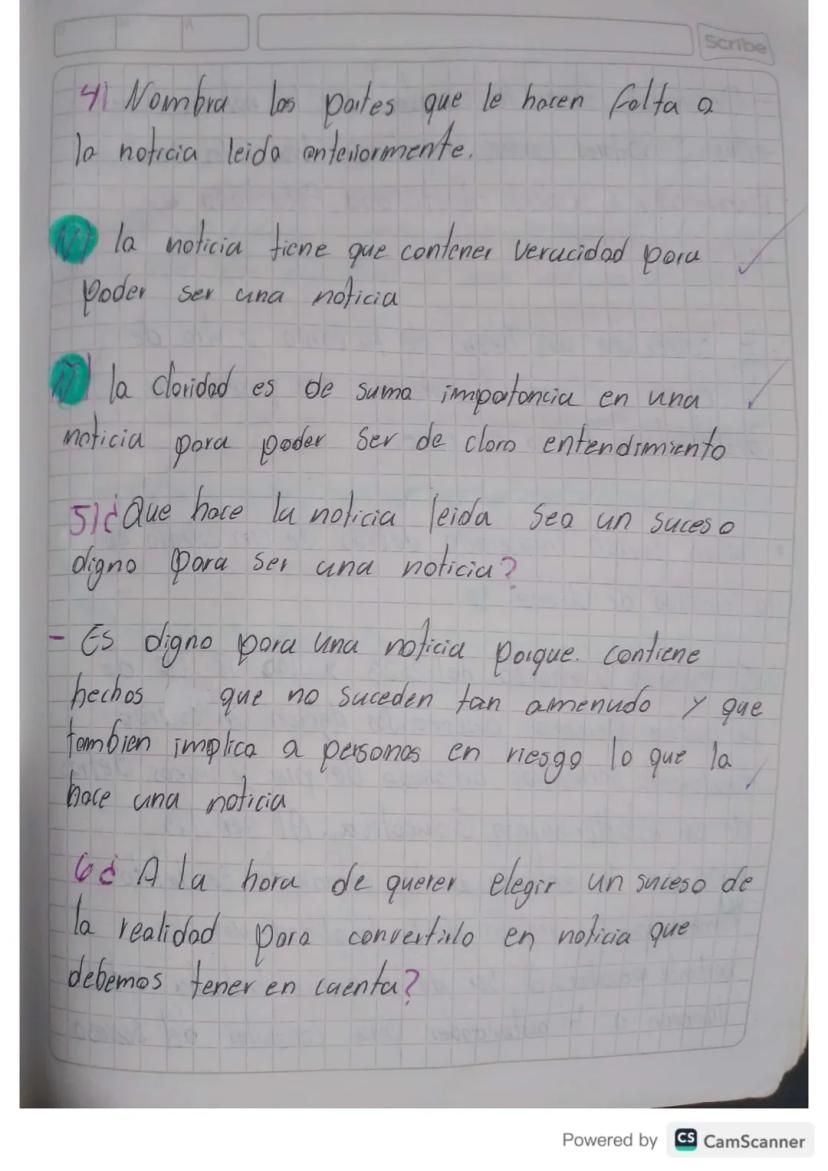 Scribe
4) Nombra las partes que le hacen falta a
la noticia leida anteriormente.
la noticia tiene que contener veracidad para
poder ser una noticia
la claridad es de suma impotancia en una
noticia para poder ser de claro entendimiento
5)¿Que hace la noticia leida sea un suceso
digno para ser una noticia?
- Es digno para una noticia porque. contiene
hechos que no suceden tan amenudo y que
tambien implica a personas en riesgo lo que la
hace una noticia
6¿ A la hora de querer elegir un suceso de
la realidad para convertirlo en noticia que
debemos tener en cuenta?
Powered by CS CamScanner